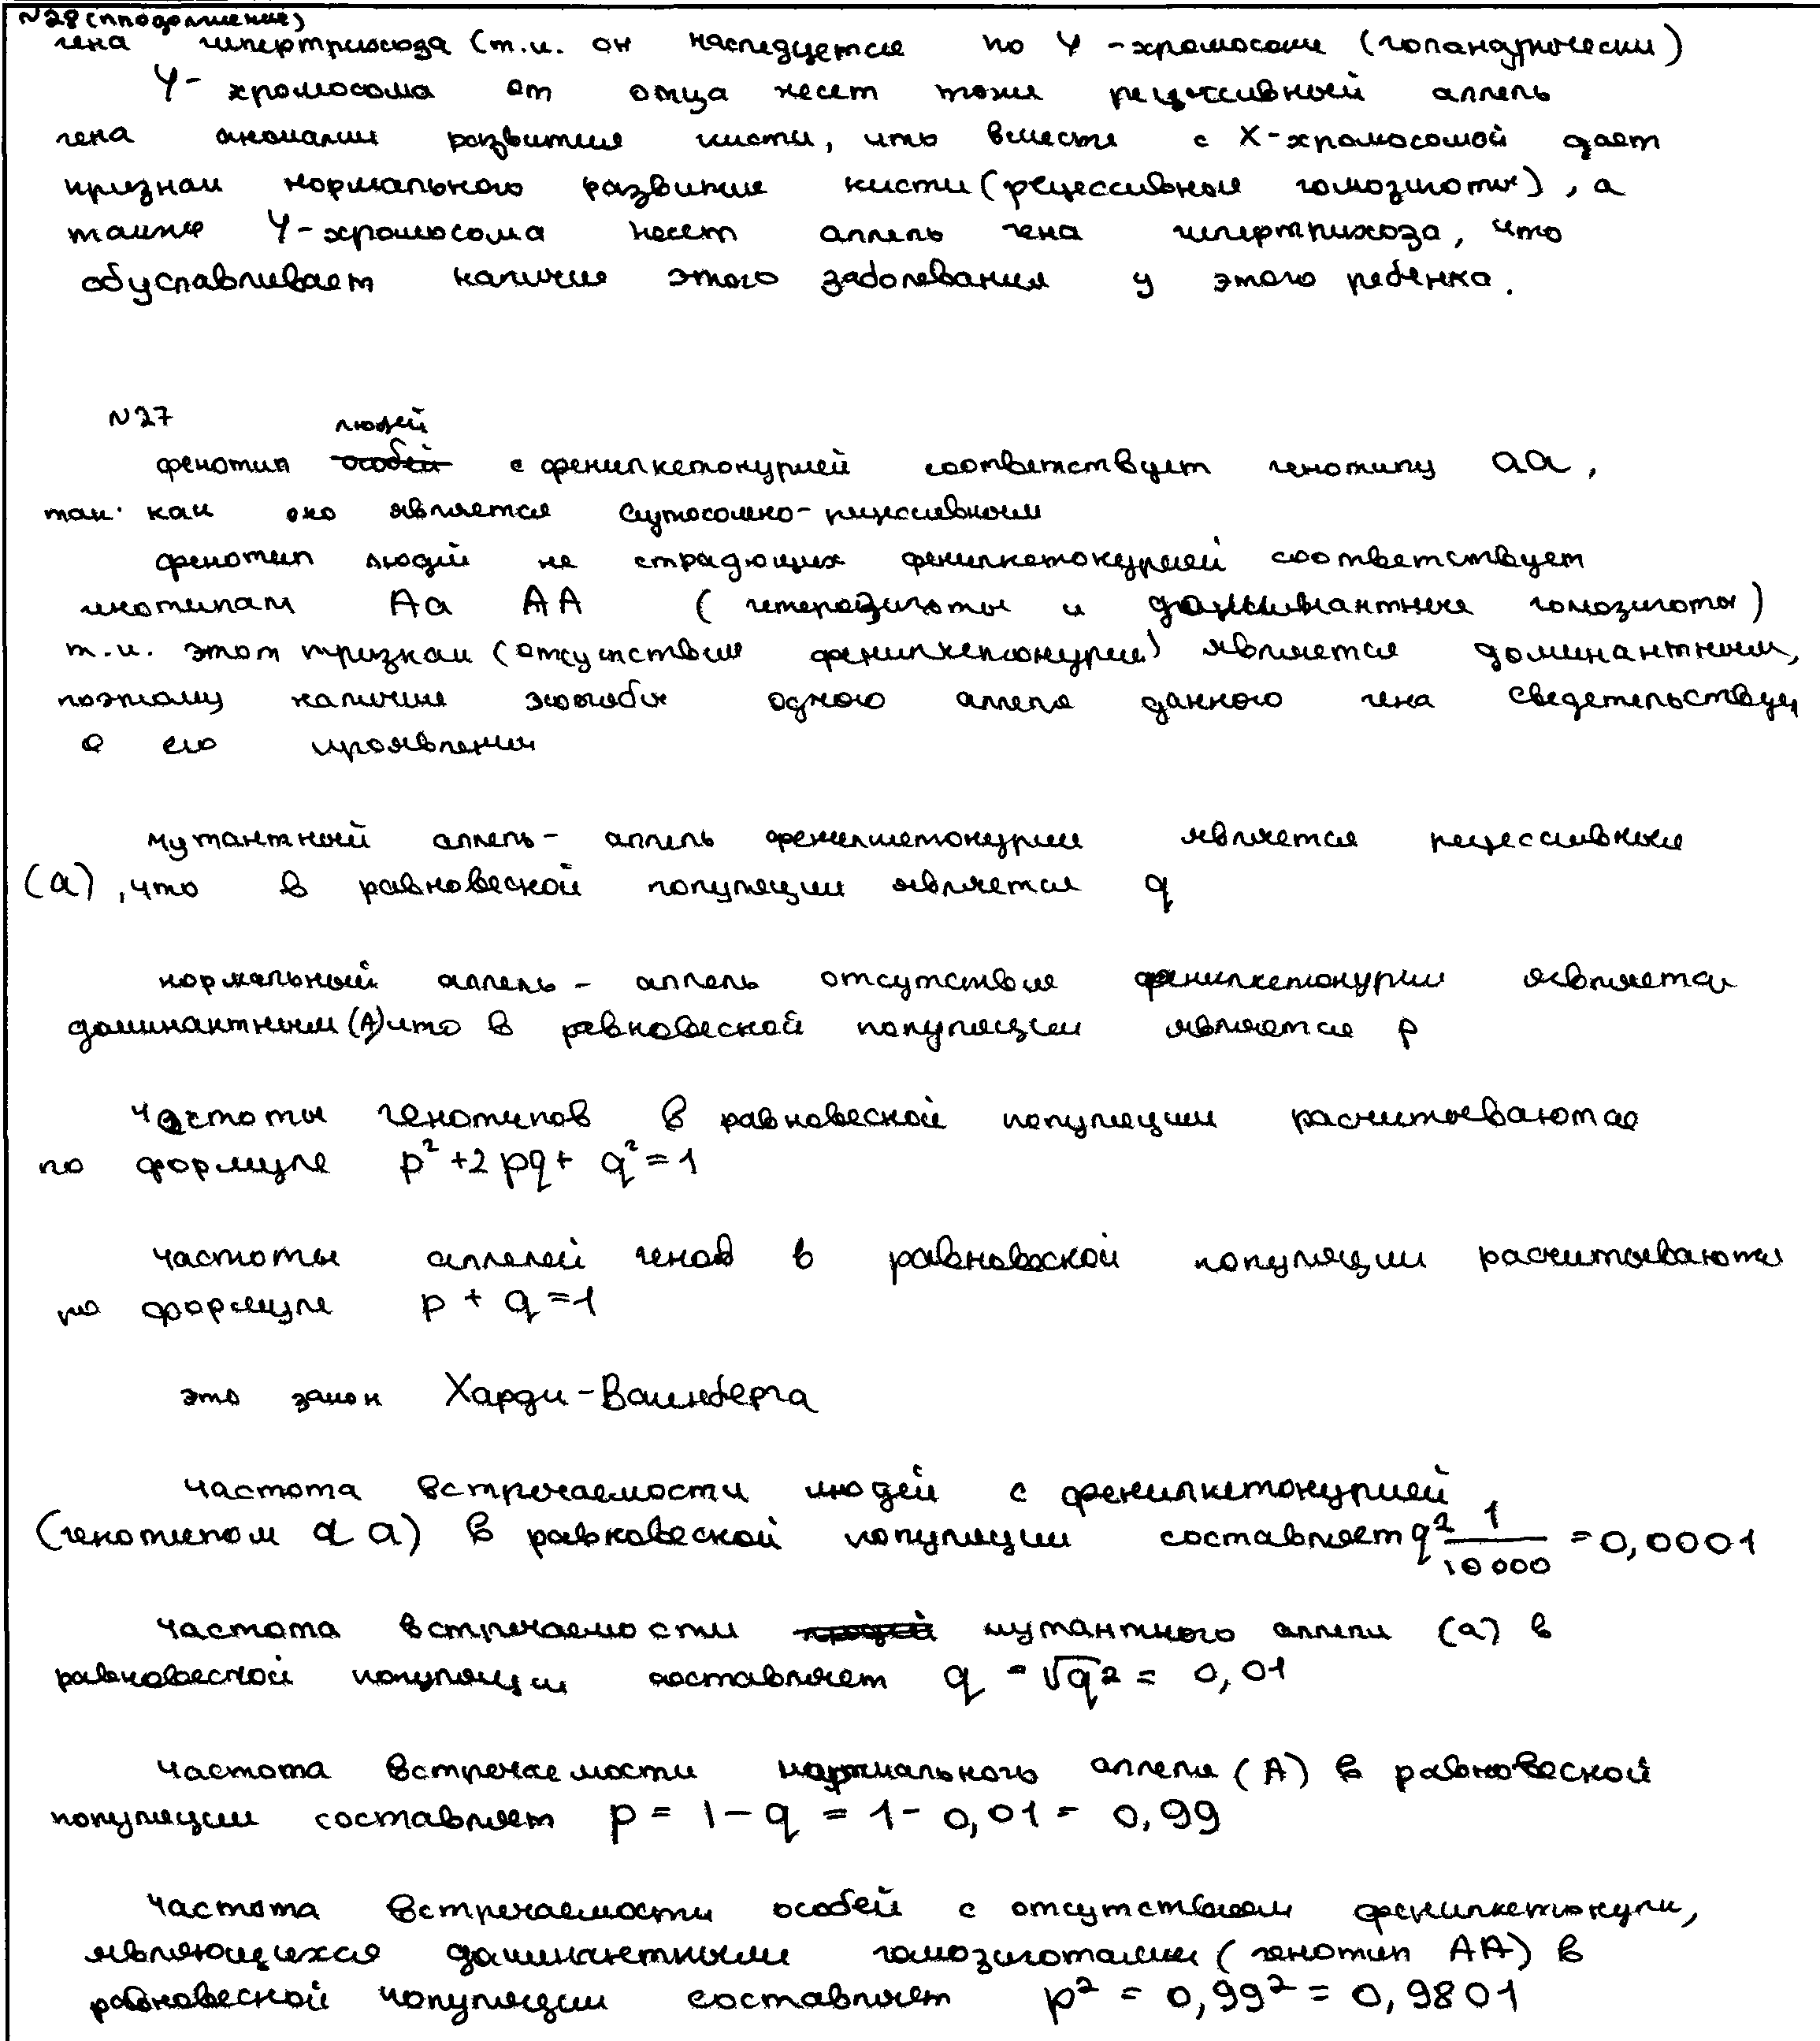 N28 (продолжение)
гена гипертрихоза (т.к. он наследуется по Y-хромосоме (голандрически)
Y-хромосома от отца несет тоже рецессивный аллель
гена аномалии развития кисти, что вместе с X-хромосомой дает
признак нормального развития кисти (рецессивная гомозигота), а
также Y-хромосома несет аллель гена гипертрихоза, что
обуславливает наличие этого заболевания у этого ребенка.
N27
фенотип людей с фенилкетонурией соответствует генотипу аа,
так как оно является аутосомно-рецессивным
фенотип людей не страдающих фенилкетонурией соответствует
генотипам Аа АА (гетерозиготы и доминантные гомозиготы)
т.к. этот признак (отсутствие фенилкетонурии) является доминантным,
поэтому наличие хотябы одного аллеля данного гена свидетельствует
о его проявлении
мутантный аллель - аллель фенилкетонурии является рецессивным
(а), что в равновесной популяции является q
нормальный аллель - аллель отсутствия фенилкетонурии является
доминантным (А) что в равновесной популяции является p
частоты генотипов в равновесной популяции расчитываются
по формуле p² + 2pq + q² = 1
частоты аллелей генов в равновеской популяции расчитываются
по формуле p + q = 1
это закон Харди-Ваинберга
частота встречаемости людей с фенилкетонурией
(генотипом аа) в равновеской популяции составляет q² 1/10000 = 0,0001
частота встречаемости мутантного аллели (а) в
равновеской популяции составляет q = √q2 = 0,01
частота встречаемости нормального аллеля (А) в равновеской
популяции составляет p = 1 - q = 1 - 0,01 = 0,99
частота встречаемости особей с отсутствием фенилкетонури,
являющихся доминантными гомозиготами (генотип АА) в
равновесной популяции составляет p² = 0,99² = 0,9801